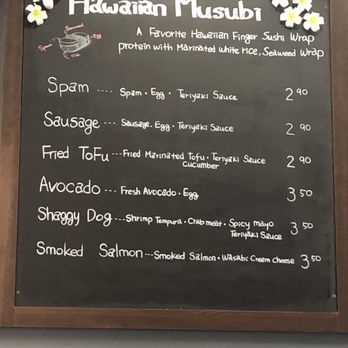 Hawaiian Musubi
A Favorite Hawaiian Finger Sushi Wrap
protein with Marinated white rice, Seaweed Wrap
Seaweed
Spam
Egg
rice
Spam ---- Spam · Egg · Teriyaki Sauce 2 90
Sausage ---- Sausage · Egg · Teriyaki Sauce 2 90
Fried ToFu -- Fried Marinated Tofu · Teriyaki Sauce 2 90
Cucumber
Avocado --- Fresh Avocado · Egg 3 50
Shaggy Dog --- Shrimp Tempura · Crab meat · Spicy mayo 3 50
Teriyaki Sauce
Smoked Salmon -- Smoked Salmon · Wasabi Cream Cheese 3 50